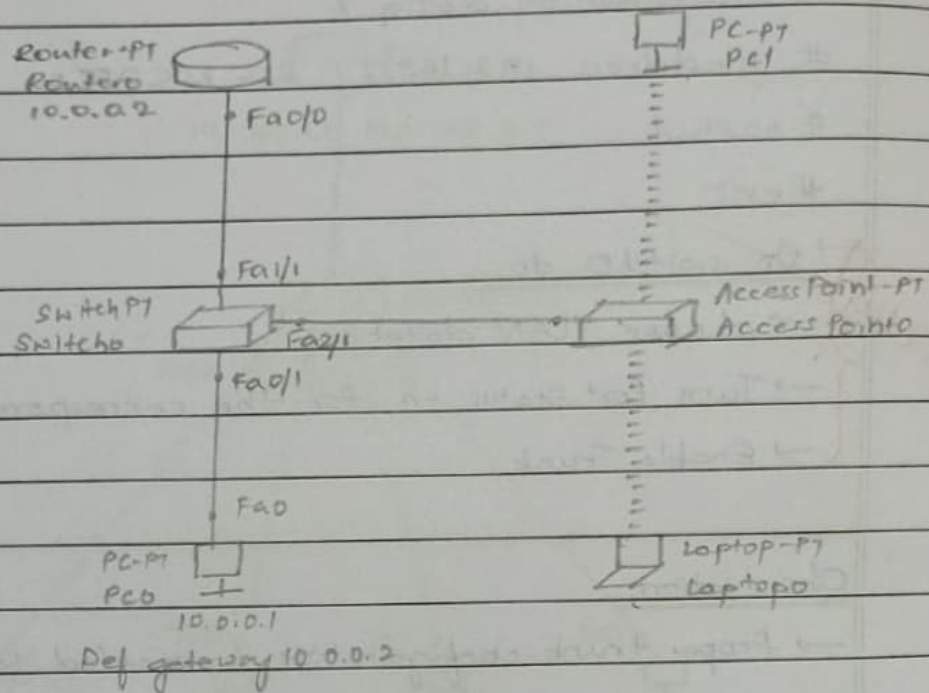 Router-PT
Router0
10.0.0.2
Fa0/0
PC-PT
PC1
Fa1/1
Switch PT
Switch0
Fa2/1
Access Point-PT
Access Point0
Fa0/1
Fa0
PC-PT
PC0
10.0.0.1
Def gateway 10.0.0.2
Laptop-PT
Laptop0